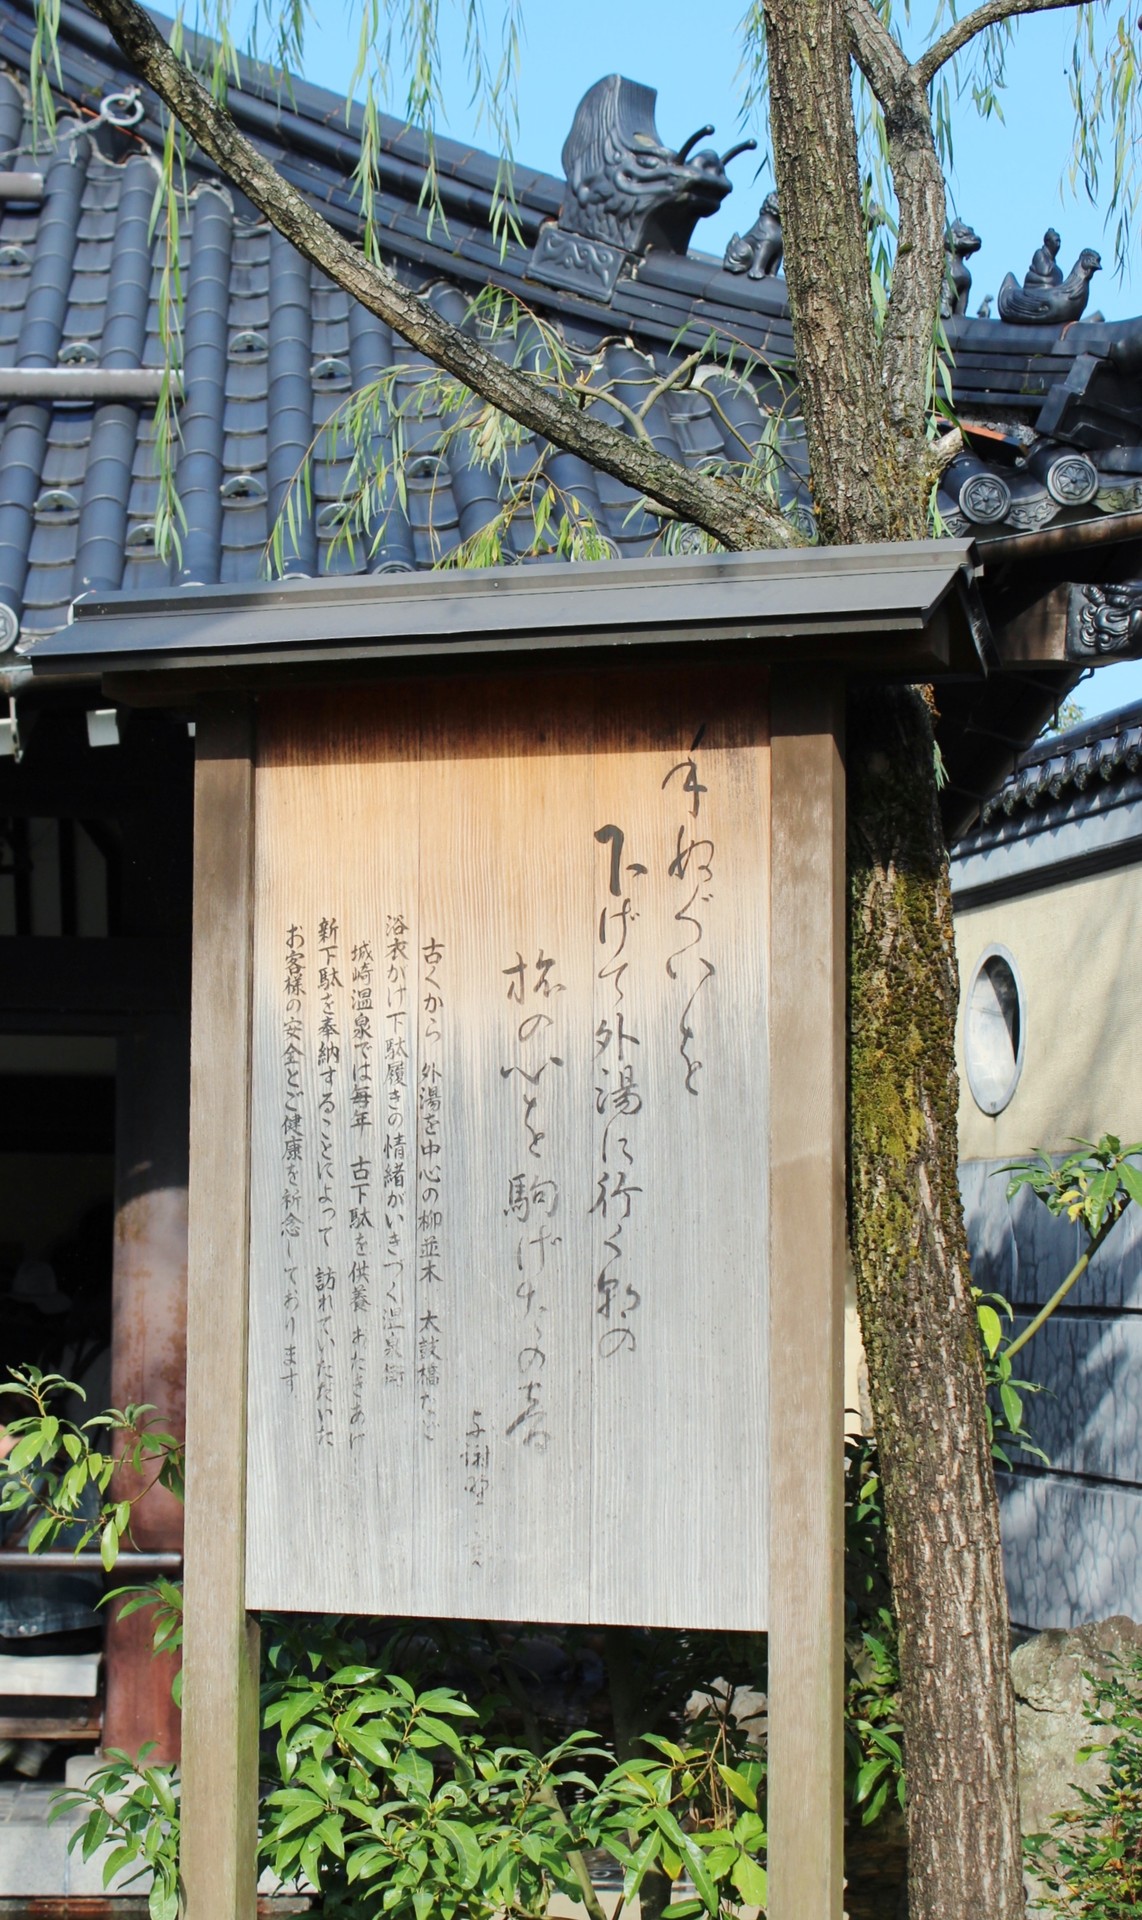 手ぬぐいを
下げて外湯に行く朝の
旅の心を駒げたの音
与謝野
古くから 外湯を中心の柳並木 太鼓橋など
浴衣がけ下駄履きの情緒がいきづく温泉街
城崎温泉では毎年 古下駄を供養 おたきあげ
新下駄を奉納することによって 訪れていただいた
お客様の安全とご健康を祈念しております